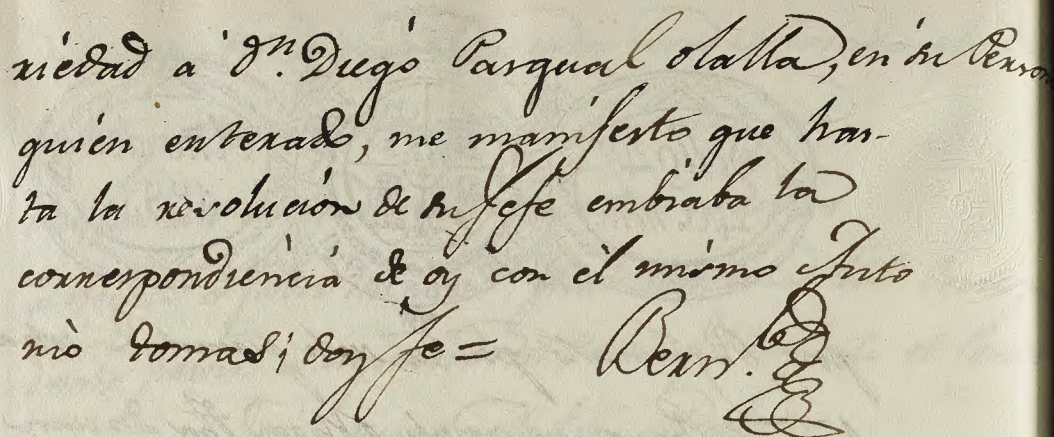 riedad a Dn. Diego Pasqual olalla, en su Person
quien enterado, me manifesto que has-
ta la resolucion de su Jefe embiaba la
correspondiencia de oy con el mismo Anto
nio tomas; doy fe =